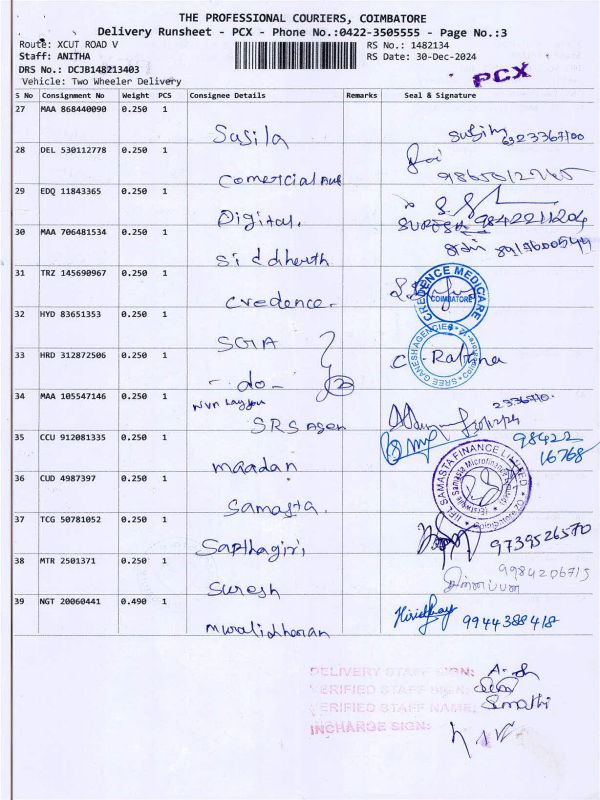 THE PROFESSIONAL COURIERS, COIMBATORE
Delivery Runsheet - PCX - Phone No.:0422-3505555 - Page No.:3
Route: XCUT ROAD V RS No.: 1482134
Staff: ANITHA RS Date: 30-Dec-2024
DRS No.: DCJB148213403
Vehicle: Two Wheeler Delivery
PCX
S No Consignment No Weight PCS Consignee Details Remarks Seal & Signature
27 MAA 868440090 0.250 1
Susila
28 DEL 530112778 0.250 1
Comercial
29 EDQ 11843365 0.250 1
Digital.
SURESH 9842211204
30 MAA 706481534 0.250 1
Siddherth
31 TRZ 145690967 0.250 1
Credence.
CREDENCE MEDICARE
COIMBATORE
32 HYD 83651353 0.250 1
SGIA
SREE GANESH AGENCIES
33 HRD 312872506 0.250 1
- do - C. Rathna
34 MAA 105547146 0.250 1
SRS Agen
35 CCU 912081335 0.250 1
98422
16768
maadan
36 CUD 4987397 0.250 1
IIFL SAMASTA FINANCE LIMITED
Samasta.
37 TCG 50781052 0.250 1
9739526570
Sapthagiri
38 MTR 2501371 0.250 1
9984206715
Suresh
39 NGT 20060441 0.490 1
9944388418
muralidheran
DELIVERY STAFF SIGN:
VERIFIED STAFF SIGN:
VERIFIED STAFF NAME: Sumathi
INCHARGE SIGN: